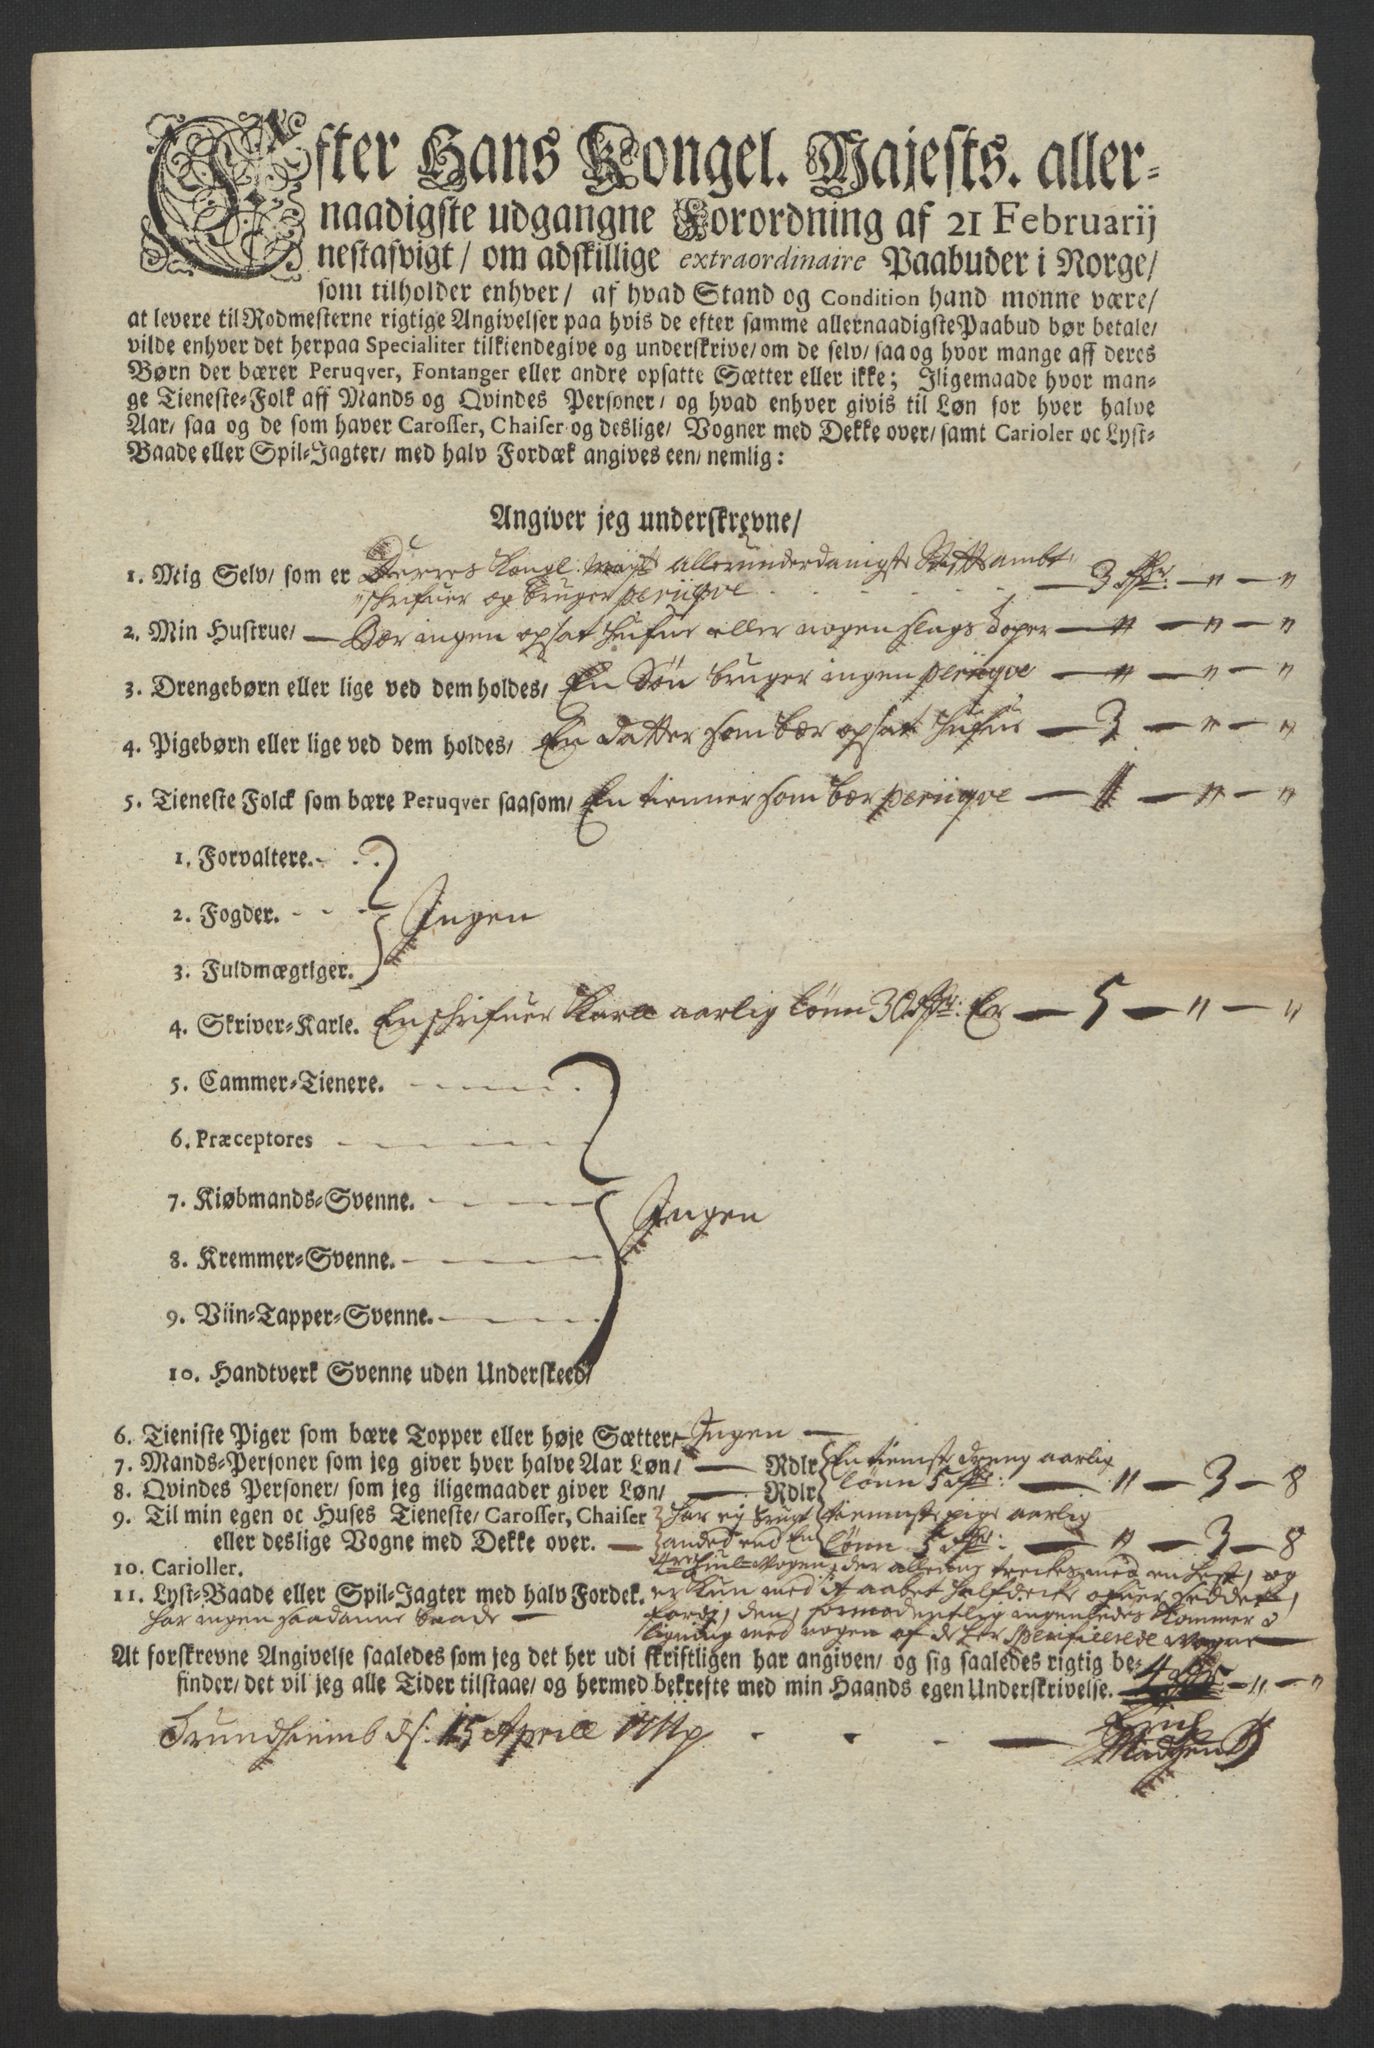 Efter Hans Kongel. Majests. aller-
naadigste udgangne Forordning af 21 Februarij
nestafvigt/ om adskillige extraordinaire Paabuder i Norge/
som tilholder enhver/ af hvad Stand og Condition hand monne være/
at levere til Rodmesterne rigtige Angivelser paa hvis de efter samme allernaadigste Paabud bør betale/
vilde enhver det herpaa Specialiter tilkiendegive og underskrive/ om de selv/ saa og hvor mange aff deres
Børn der bærer Peruqver, Fontanger eller andre opsatte Sætter eller ikke; Iligemaade hvor man-
ge Tieneste-Folk aff Mands og Qvindes Personer/ og hvad enhver givis til Løn for hver halve
Aar/ saa og de som haver Carosser, Chaiser og deslige/ Vogner med Dekke over/ samt Carioler oc Lyst-
Baade eller Spil-Jagter/ med halv Fordæk angives een/ nemlig:
Angiver jeg underskrevne/
1. Mig Selv/ som er Derres Kongl: Mayts allerunderdanigste Stiftambt — 3 — " — "
schrifuer og bruger periqve
2. Min Hustrue/ — Bær ingen opsat hufue eller nogen slags toper — " — " — "
3. Drengebørn eller lige ved dem holdes/ En Søn bruger ingen periqve — " — " — "
4. Pigebørn eller lige ved dem holdes/ En datter som bær opsat hufue — 3 — " — "
5. Tieneste Folck som bære Peruqver saasom/ En tienner som bær periqve — 1 — " — "
1. Forvaltere.
2. Fogder. Ingen
3. Fuldmægtiger.
4. Skriver-Karle. En schrifuer Karll aarlig lønn 30 Er — 5 — " — "
5. Cammer-Tienere.
6. Præceptores
7. Kiøbmands-Svenne. Ingen
8. Kremmer-Svenne.
9. Viin-Tapper-Svenne.
10. Handtverk Svenne uden Underskeed/
6. Tieniste Piger som bære Topper eller høje Sætter/ Ingen —
7. Mands-Personer som jeg giver hver halve Aar Løn/ — Rdlr En tieniste dreng aarlig
8. Qvindes Personer/ som jeg iligemaader giver Løn/ — Rdlr lønn 5 — " — 3 — 8
9. Til min egen oc Huses Tieneste/ Carosser, Chaiser har ej brugt tienniste pige aarlig
eller deslige Vogne med Dekke over. — andet end En lønn 5 — " — 3 — 8
10. Carioller. huul Vogen, der alleene treckes med en hest, og
11. Lyst-Baade eller Spil-Jagter med halv Fordek. er kun med it aabet halfdecke ofuer seddet,
har ingen saadanne baade — fordj, den, formodentlig ingenledes kommer i
ligning med nogen af de her specificerede Vogne —
At forskrevne Angivelse saaledes som jeg det her udi skriftligen har angiven/ og sig saaledes rigtig be-
finder/ det vil jeg alle Tider tilstaae/ og hermed bekrefte med min Haands egen Underskrivelse. 4 — " — "
Trundhiemb ds: 15 Aprill 1711 —
Madsen